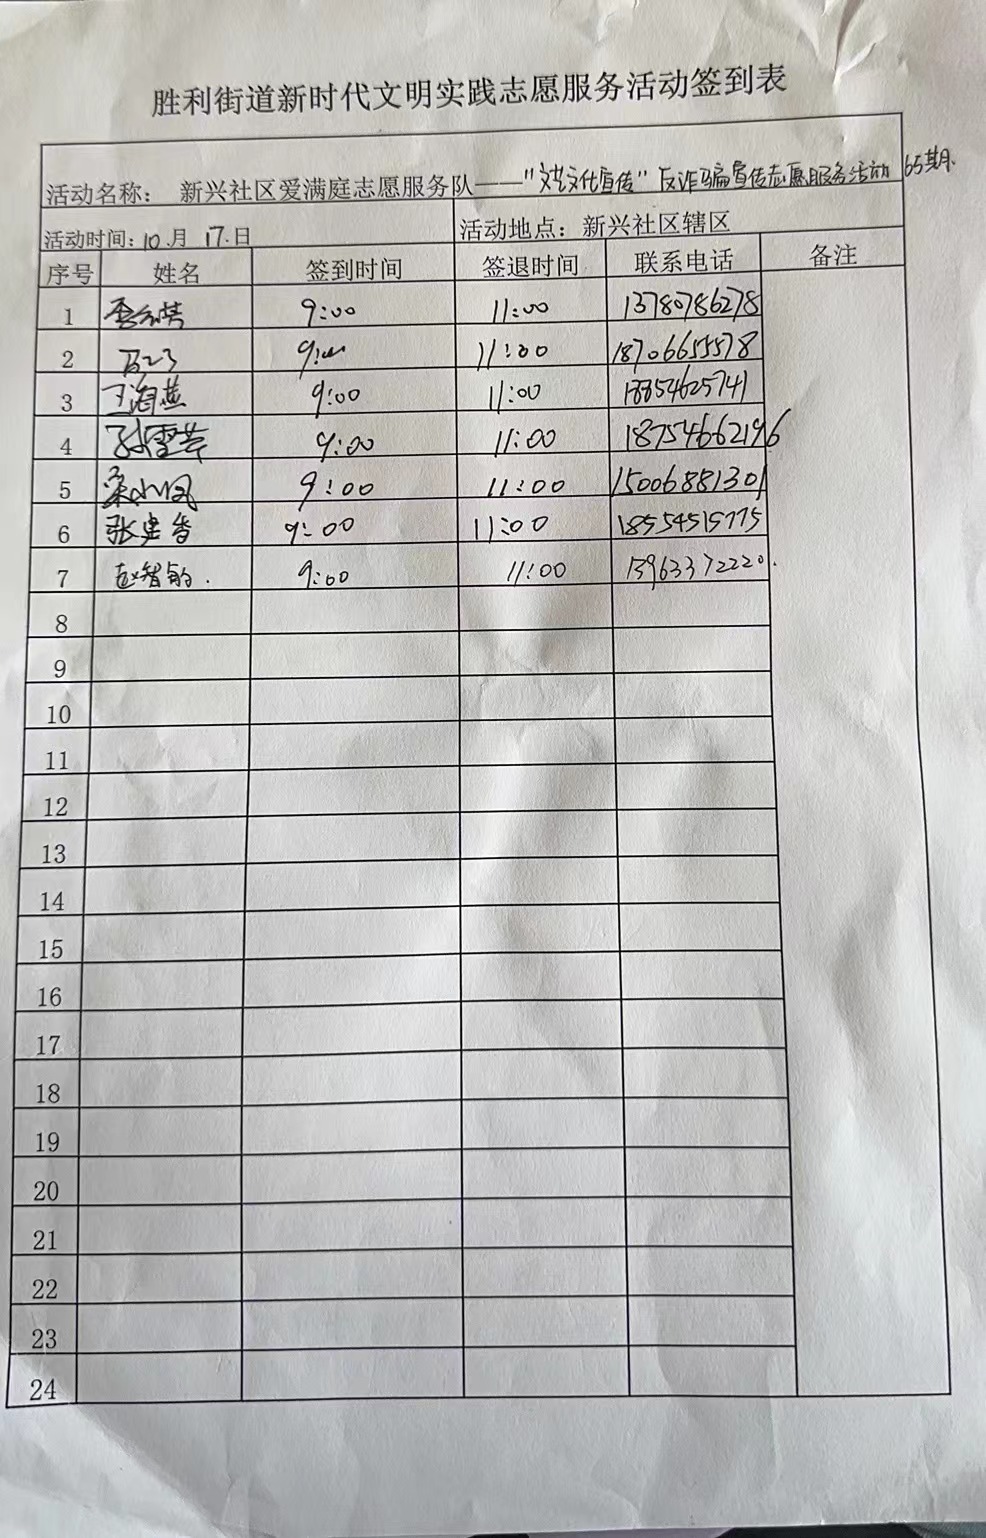 胜利街道新时代文明实践志愿服务活动签到表
活动名称： 新兴社区爱满庭志愿服务队——"文艺文化宣传" 反诈骗宣传志愿服务活动 65期.
活动时间:10.月 17.日 活动地点：新兴社区辖区
序号 姓名 签到时间 签退时间 联系电话 备注
1 9:00 11:00 13780786278
2 9:00 11:00 18706655578
3 王海燕 9:00 11:00 18854625741
4 孙雪芹 9:00 11:00 18754662196
5 栾小凤 9:00 11:00 15006881301
6 张建香 9:00 11:00 18554515775
7 9:00 11:00 13963372220.
8
9
10
11
12
13
14
15
16
17
18
19
20
21
22
23
24